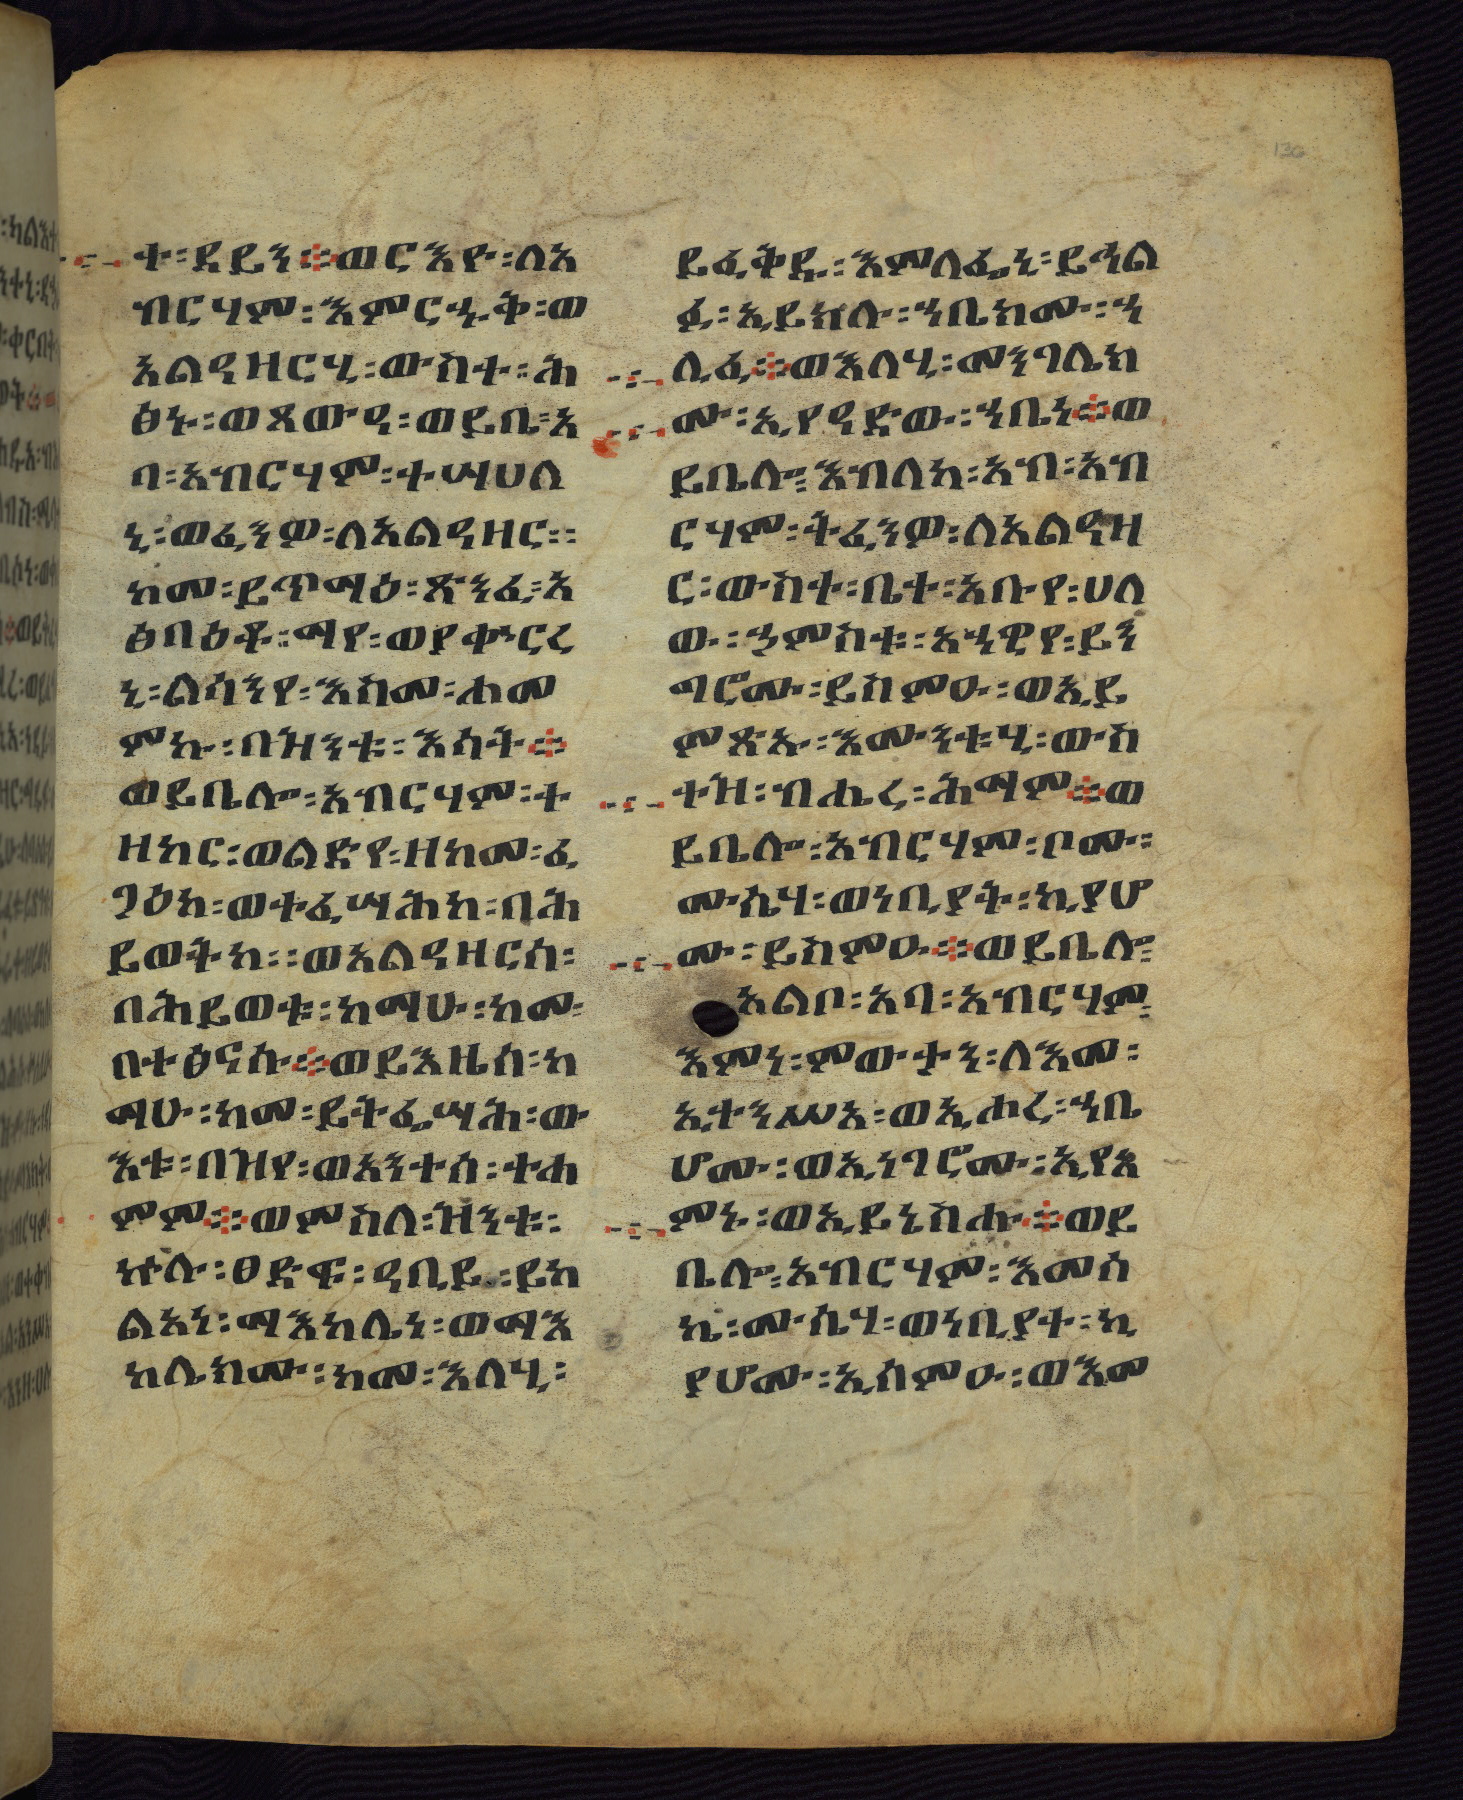 ተ፡ደይን፨ወርእዮ፡ለአ
ብርሃም፡እምርኁቅ፡ወ
አልዓዘርሃ፡ውስተ፡ሕ
ፅኑ፡ወጸውዓ፡ወይቤ፡አ
ባ፡አብርሃም፡ተሣሀለ
ኒ፡ወፈንዎ፡ለአልዓዘር፡፡
ከመ፡ይጥማዕ፡ጽንፈ፡አ
ፅባዕቶ፡ማየ፡ወያቍርር
ኒ፡ልሳንየ፡እስመ፡ሐመ
ምኩ፡በዝንቱ፡እሳት፨
ወይቤሎ፡አብርሃም፡ተ
ዘከር፡ወልድየ፡ዘከመ፡ፈ
ጋዕከ፡ወተፈሣሕከ፡በሕ
ይወትከ፡፡ወአልዓዘርሰ፡
በሕይወቱ፡ከማሁ፡ከመ፡
በተፅናሱ፨ወይእዜሰ፡ከ
ማሁ፡ከመ፡ይትፌሣሕ፡ው
እቱ፡በዝየ፡ወአንተሰ፡ተሐ
ምም፨ወምስለ፡ዝንቱ፡
ኵሉ፡ፀድፍ፡ዓቢይ፡ይከ
ልአነ፡ማእከሌነ፡ወማእ
ከሌክሙ፡ከመ፡እለሂ፡
ይፈቅዱ፡እምለፌኒ፡ይኅል
ፉ፡ኢይክሉ፡ኀቤክሙ፡ኀ
ሊፈ፨ወእለሂ፡መንገሌክ
ሙ፡ኢየዓድው፡ኀቤነ፨ወ
ይቤሎ፡እብለከ፡አብ፡አብ
ርሃም፡ትፈንዎ፡ለአልዓዘ
ር፡ውስተ፡ቤተ፡አቡየ፡ሀለ
ው፡ኃምስቱ፡አኃዊየ፡ይን
ግሮሙ፡ይስምዑ፡ወኢይ
ምጽኡ፡እሙንቱሂ፡ውስ
ተዝ፡ብሔረ፡ሕማም፨ወ
ይቤሎ፡አብርሃም፡ቦሙ፡
ሙሴሃ፡ወነቢያት፡ኪያሆ
ሙ፡ይስምዑ፨ወይቤሎ፡
አልቦ፡አባ፡አብርሃም፡
እምነ፡ምውታን፡ለእመ፡
ኢተንሥአ፡ወኢሐረ፡ኀቤ
ሆሙ፡ወኢነገሮሙ፡ኢየአ
ምኑ፡ወኢይኔስሑ፨ወይ
ቤሎ፡አብርሃም፡እመሰ
ኬ፡ሙሴሃ፡ወነቢያተ፡ኪ
ያሆሙ፡ኢሰምዑ፡ወእመ